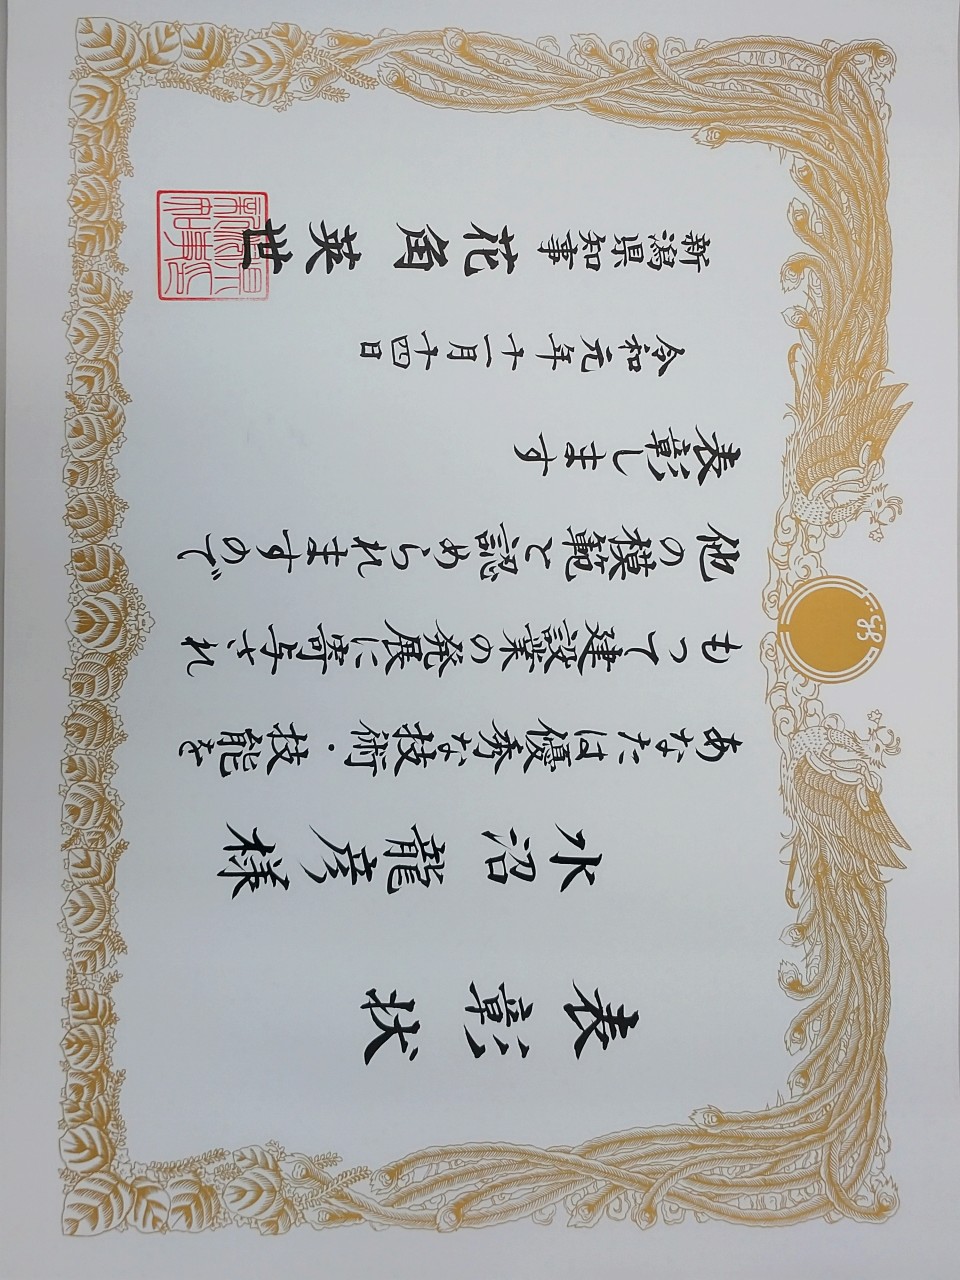 表彰状
水沼龍彦様
あなたは優秀な技術・技能を
もって建設業の発展に寄与され
他の模範と認められますので
表彰します
令和元年十一月十四日
新潟県知事 花角英世